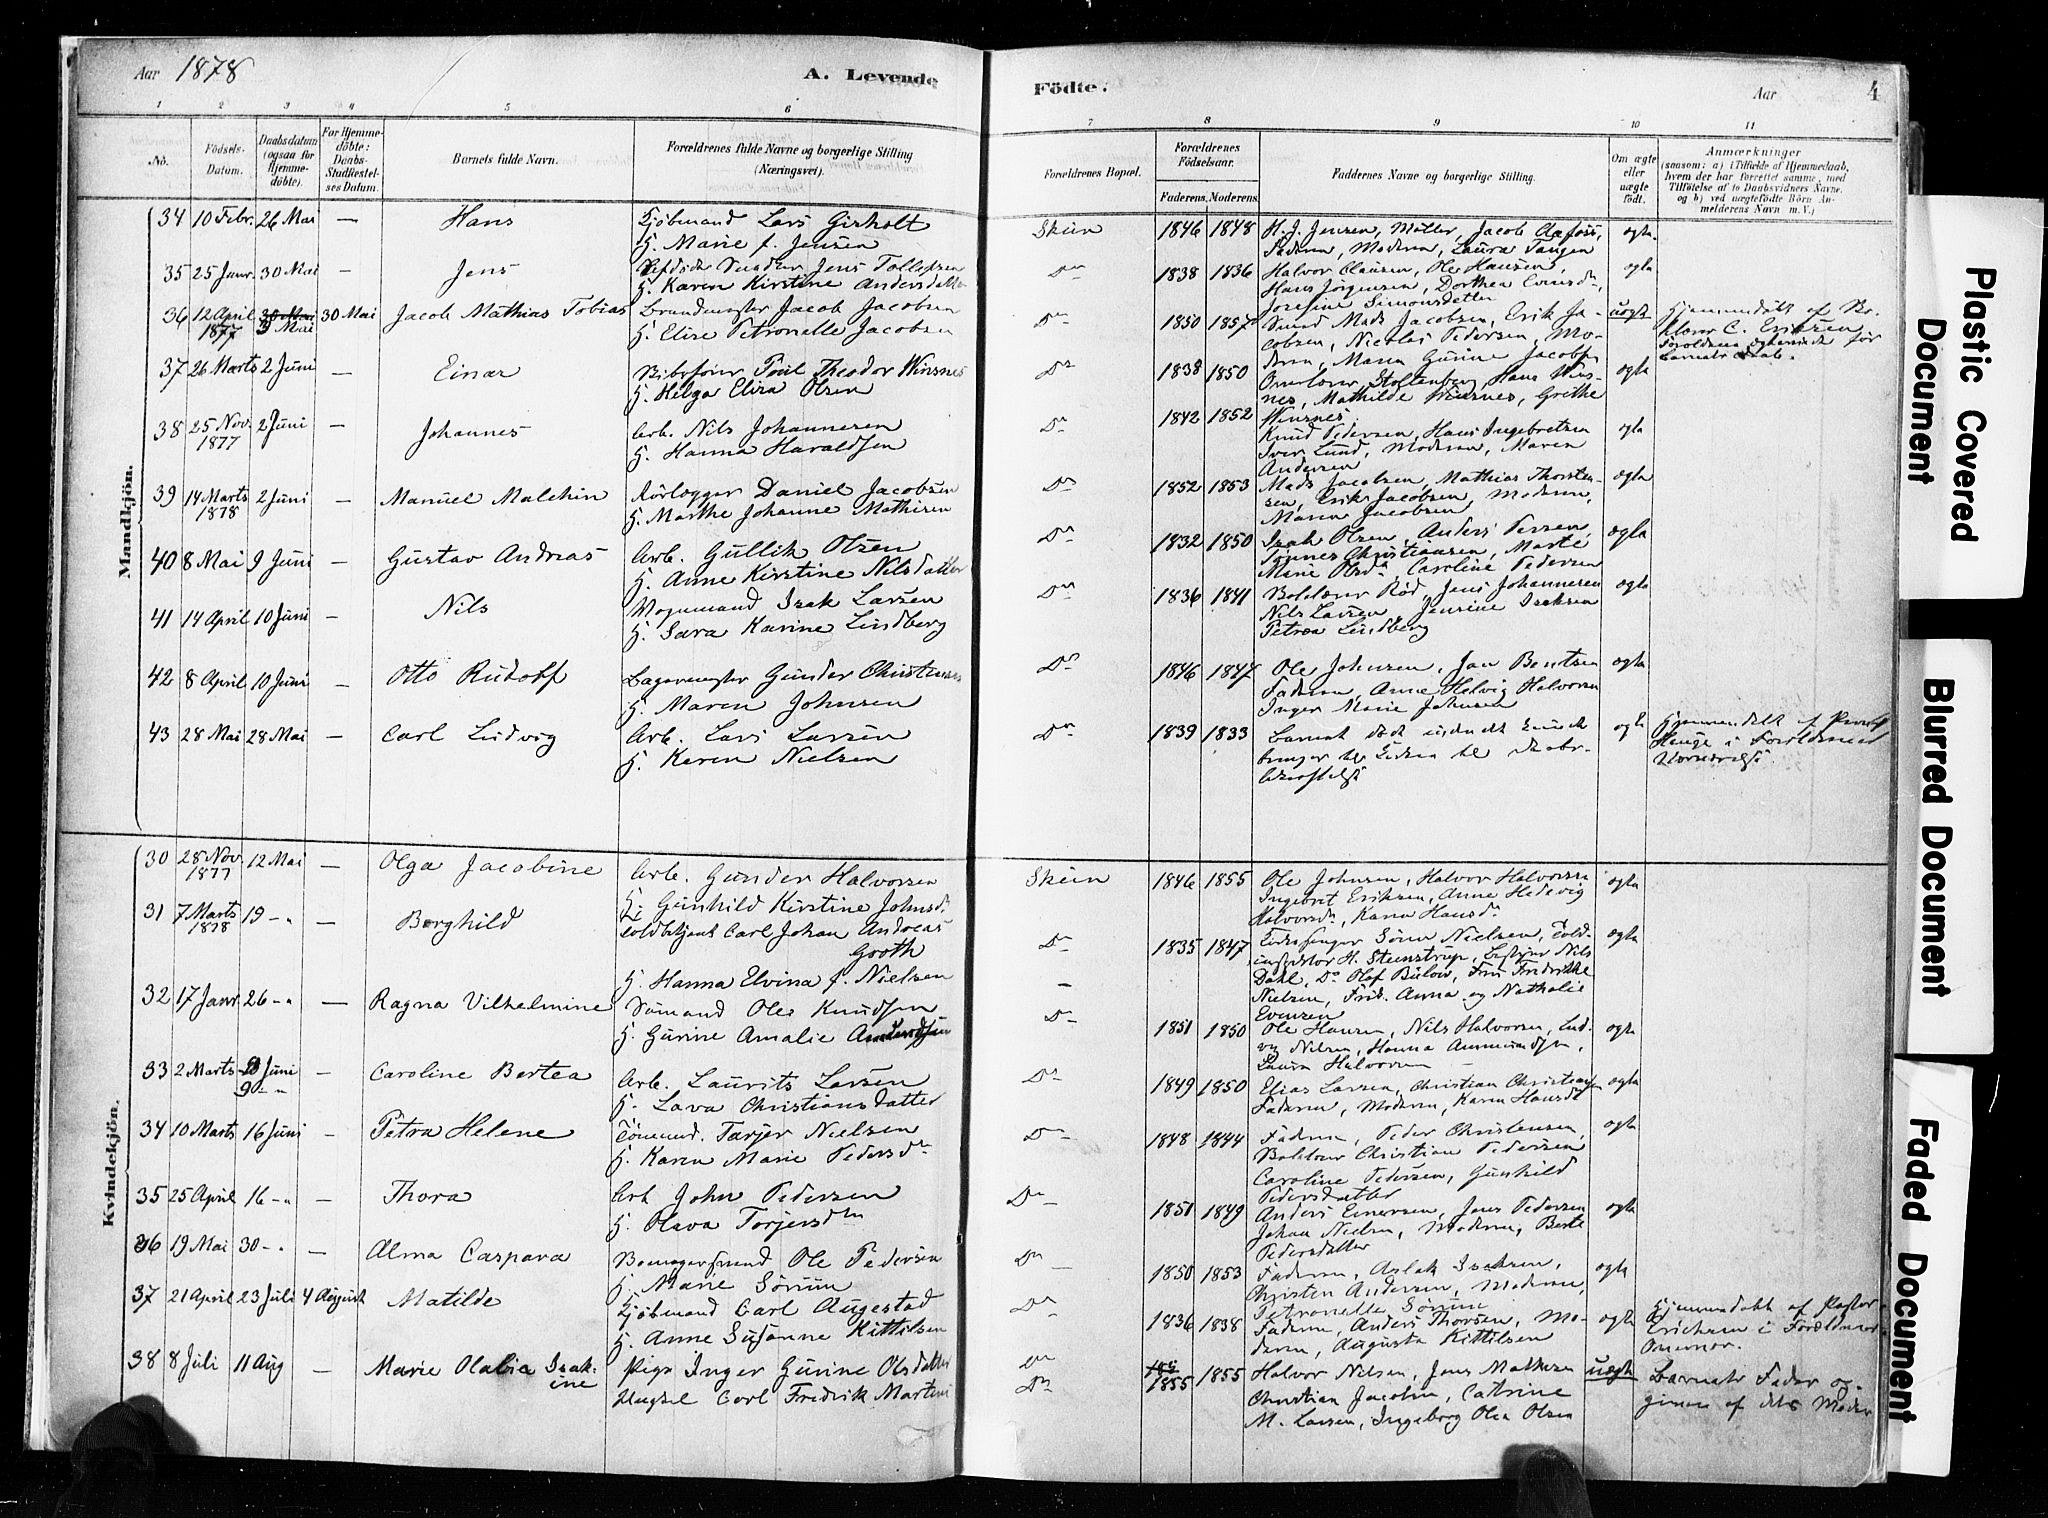 Aar 1878
A. Levende
Födte.
Aar
4
1 2 3 4 5 6
7 8 9 10 11
No.
Födsels-
Datum.
Daabsdatum
(ogsaa for
Hjemme-
döbte).
For Hjemme-
döbte:
Daabs-
Stadfæstel-
ses Datum.
Barnets fulde Navn.
Forældrenes fulde Navne og borgerlige Stilling
(Næringsvei).
Forældrenes Bopæl.
Forældrenes
Födselsaar.
Faderens. Moderens.
Faddernes Navne og borgerlige Stilling.
Om ægte
eller
uægte
födt.
Anmærkninger
(saasom: a) i Tilfælde af Hjemmedaab,
hvem der har forrettet samme, med
Tilföielse af to Daabsvidners Navne.
og b) ved uægtefödte Börn An-
melderens Navn m. V.)
Mandkjön.
34 10 Febr. 26 Mai — Hans Kjöbmand Lars Girholt
H. Marie f. Jensen
Skien 1846 1848 H. J. Jensen, Möller, Jacob Clafoss, ægte.
Faderen, Moderen, Laura Tangen
35 25 Janr. 30 Mai — Jens Jens Tollefsen
H. Karen Kirstine Andersdatter
Do 1838 1836 Halvor Clausen, Ole Hansen, ægte
Hans Jörgensen, Dorthea Evensd.,
Josefine Simonsdatter
36 12 April 1877 30 Mai 3 Mai 30 Mai Jacob Mathias Tobias Brandmester Jacob Jacobsen
H. Elise Petronelle Jacobsen
Do 1850 1857 Mads Jacobsen, Erik Ja- uægte
cobsen, Nicolai Pedersen, Mo-
deren, Maren Gurine Jacobsen
Hjemmedöbt af
C. Eriksen
37 26 Marts 2 Juni — Einar Theodor Winsnes
H. Helga Eliza Olsen
Do 1838 1850 Stoltenberg, Hans Wins- ægte
nes, Mathilde Winsnes, Grethe
Winsnes
38 25 Nov. 1877 2 Juni — Johannes Arb. Nils Johannesen
H. Hanna Haraldsen
Do 1842 1852 Knud Pedersen, Hans Ingebretsen ægte
Iver Lund, Moderen, Maren
Andersen
39 14 Marts 1878 2 Juni — Manuel Malchin Rörlægger Daniel Jacobsen
H. Marthe Johanne Mathisen
Do 1852 1853 Mads Jacobsen, Mathias Thorsten- ægte
sen, Erik Jacobsen, Moderen,
Maren Jacobsen
40 8 Mai 9 Juni — Gustav Andreas Arb. Gullik Olsen
H. Anne Kirstine Nilsdatter
Do 1832 1850 Isak Olsen, Anders Persen, ægte
Tönnes Christiansen, Marte
Marie Olsd. Caroline Pedersen
41 14 April 10 Juni — Nils Vognmand Isak Larsen
H. Sara Karine Lindberg
Do 1836 1841 Röd, Jens Johannesen ægte
Nils Larsen, Jensine Isaksen
Petrea Lindberg
42 8 April 10 Juni — Otto Rudolf Bagermester Gunder Christiansen
H. Maren Johnsen
Do 1846 1847 Ole Johnsen, Jan Bentsen ægte
Faderen, Anne Helvig Halvorsen
Inger Marie Johnsen
43 28 Mai 28 Mai — Carl Ludvig Arb. Lars Larsen
H. Karen Nielsen
Do 1839 1833 Barnet död ægte
Hjemmedöbt af
Kvindekjön.
30 28 Nov. 1877 12 Mai — Olga Jacobine Arb. Gunder Halvorsen
H. Gunhild Kirstine Johnsd.
Skien 1846 1855 Ole Johnsen, Halvor Halvorsen ægte
Ingebret Eriksen, Anne Hedevig
Halvorsd., Karen Hansd.
31 7 Marts 1878 19 -"- — Borghild Toldbetjent Carl Johan Andreas
Grøth
H. Hanna Elvina f. Nielsen
Do 1835 1847 Sören Nielsen, Told- ægte
H. Steenstrup, Nils
Dahl, Do Olaf Bülow, Fru Fredrikke
Nielsen, Frk. Anna og Nathalie
Evensen
32 17 Janr. 26 -"- — Ragna Vilhelmine Sömand Ole Knudsen
H. Gurine Amalie Amundsen
Do 1851 1850 Ole Hansen, Nils Halvorsen, Lud- ægte
vig Nilsen, Hanna Ammundsen,
Laura Halvorsen
33 2 Marts Juni 9 -"- — Caroline Bertea Arb. Laurits Larsen
H. Lava Christiansdatter
Do 1849 1850 Elias Larsen, Christian Christiansen ægte
Faderen, Moderen, Karen Hansd.
34 10 Marts 16 Juni — Petra Helene Tömmmd. Tarjer Nielsen
H. Karen Marie Pedersd.
Do 1848 1844 Faderen, Peder Christensen, ægte
Christian Pedersen
Caroline Pedersen, Gunhild
Pedersdatter
35 25 April 16 -"- — Thora Arb John Pedersen
H. Olava Torjersd.
Do 1851 1849 Anders Einersen, Jens Pedersen ægte
Johan Nielsen, Moderen, Berte
Pedersdatter
36 19 Mai 30 -"- — Alma Caspara Ole Pedersen
H. Marie Sörum
Do 1850 1853 Faderen, Aslak Isaksen, ægte
Christen Andersen, Moderen,
Petronelle Sörum
37 21 April 23 Juli 4 August Matilde Kjöbmand Carl Augestad
H. Anne Susanne Kittilsen
Do 1836 1838 Faderen, Anders Thorsen, Mo- ægte
deren, Augusta Kittilsen
Hjemmedöbt af Pastor
Erichsen i Forældrenes
38 8 Juli 11 Aug Marie Olabia Isak-
ine
Pige Inger Gurine Olsdatter
Ungkarl Carl Fredrik Martini
Do 1855 1855 Halvor Nilsen, Jens Mathisen uægte
Christian Jacobsen, Cathrine
M. Larsen, Ingeborg Olea Olsen
Barnets Fader op-
given af dets Moder
Plastic Covered
Document
Blurred Document
Faded Document